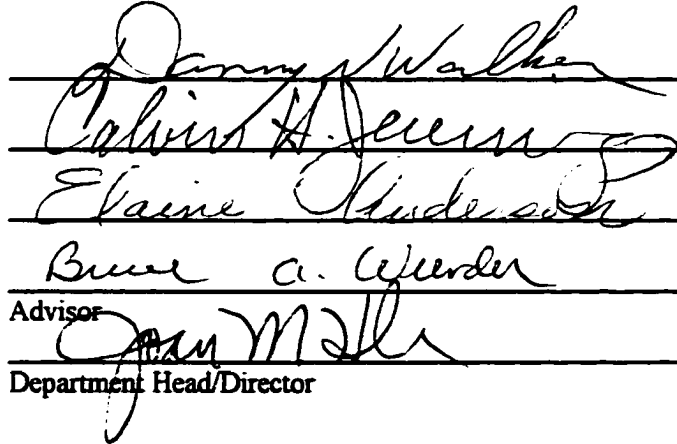 Danny Walker
Calvin H.
Elaine Anderson
Bruce A. Wunder
Advisor
Joan M
Department Head/Director